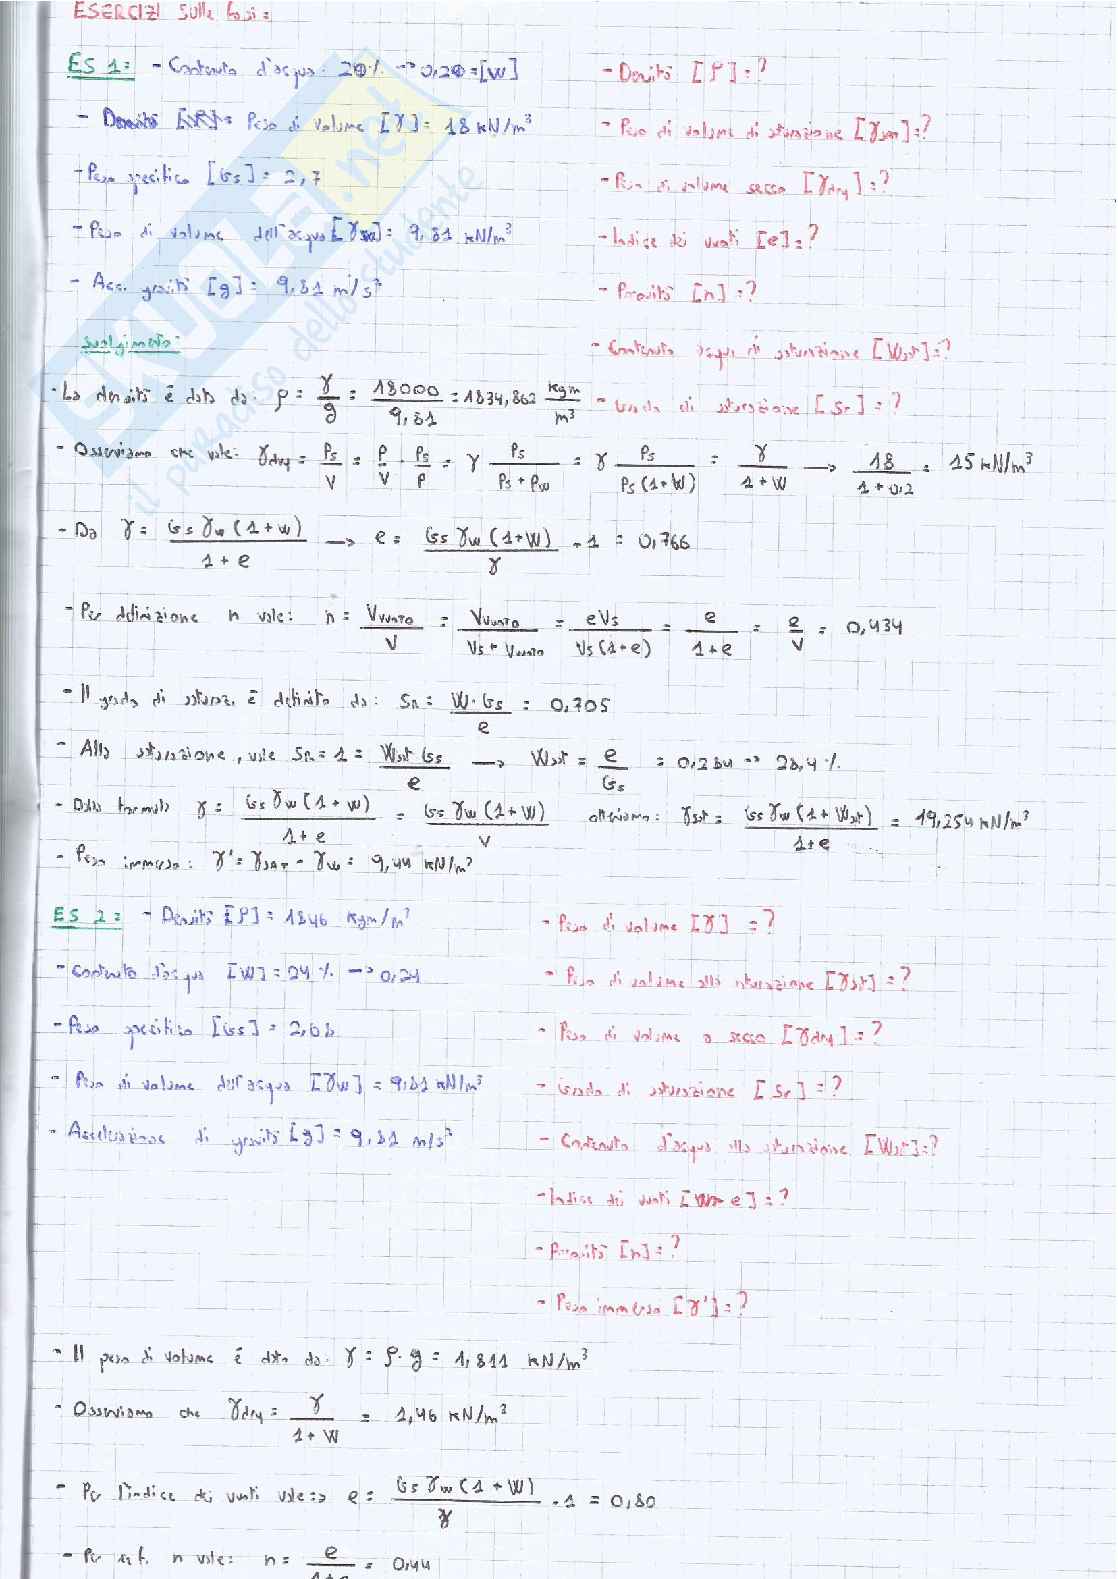 ESERCIZI sulle fasi:
ES 1: - Contenuto d'acqua: 20% → 0,20 = [W]
- Densità [ρ] = ?
- Peso di volume [γ] = 18 kN/m³
- Peso di volume di saturazione [γsat] = ?
- Peso specifico [Gs] = 2,7
- Peso di volume secco [γdry] = ?
- Peso di volume dell'acqua [γw] = 9,81 kN/m³
- Indice dei vuoti [e] = ?
- Acc. gravità [g] = 9,81 m/s²
- Porosità [n] = ?
Svolgimento:
- Contenuto d'acqua di saturazione [Wsat] = ?
- La densità è data da: ρ = γ/g = 18000/9,81 = 1834,862 kgm/m³
- Grado di saturazione [Sr] = ?
- Osserviamo che vale: γdry = Ps/V = P/V · Ps/P = γ Ps/(Ps + Pw) = γ Ps/(Ps(1+W)) = γ/(1+W) → 18/(1+0,2) = 15 kN/m³
- Da γ = Gs γw (1+w)/(1+e) → e = Gs γw (1+W)/γ - 1 = 0,766
- Per definizione n vale: n = Vvuoto/V = Vvuoto/(Vs + Vvuoto) = eVs/(Vs(1+e)) = e/(1+e) = e/V = 0,434
- Il grado di saturaz. è definito da: Sr = W·Gs/e = 0,705
- Alla saturazione, vale Sr = 1 = Wsat Gs/e → Wsat = e/Gs = 0,284 => 28,4 %
- Dalla formula γ = Gs γw (1+w)/(1+e) = Gs γw (1+W)/V otteniamo: γsat = Gs γw (1+Wsat)/(1+e) = 19,254 kN/m³
- Peso immerso: γ' = γSAT - γw = 9,44 kN/m³
ES 2: - Densità [ρ] = 1846 kgm/m³
- Peso di volume [γ] = ?
- Contenuto d'acqua [W] = 24 % → 0,24
- Peso di volume alla saturazione [γsat] = ?
- Peso specifico [Gs] = 2,68
- Peso di volume a secco [γdry] = ?
- Peso di volume dell'acqua [γw] = 9,81 kN/m³
- Grado di saturazione [Sr] = ?
- Accelerazione di gravità [g] = 9,81 m/s²
- Contenuto d'acqua alla saturazione [Wsat] = ?
- Indice dei vuoti [e] = ?
- Porosità [n] = ?
- Peso immerso [γ'] = ?
- Il peso di volume è dato da: γ = ρ · g = 1,811 kN/m³
- Osserviamo che γdry = γ/(1+W) = 1,46 kN/m³
- Per l'indice dei vuoti vale => e = Gs γw (1+W)/γ - 1 = 0,80
- Per n vale: n = e/(1+e) = 0,44
SKUOLA.net
il paradiso dello studente